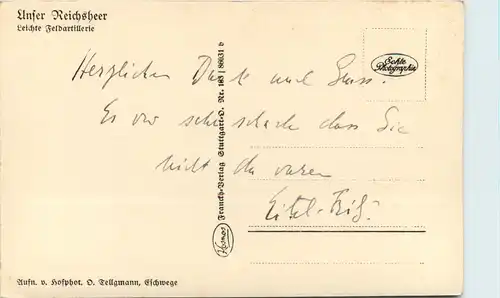 Unser Reichsheer
Leichte Feldartillerie
Echte
Photographie
Herzlichen Dank und Gruss.
Es war sehr schade dass Sie
nicht da waren
Eitel-Fritz
Franckh-Verlag Stuttgart-O. Nr. 183 / 86631 b
Kosmos
Aufn. v. Hofphot. O. Tellgmann, Eschwege